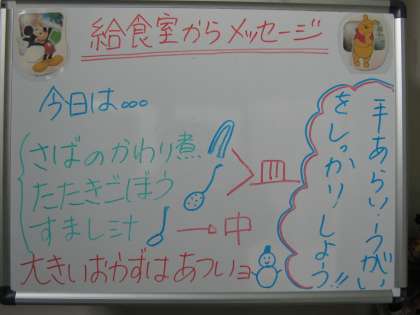 給食室からメッセージ
今日は…
さばのかわり煮
たたきごぼう
皿
すまし汁
→中
大きいおかずはあついヨ
手あらい・うがい
をしっかりしよう!!